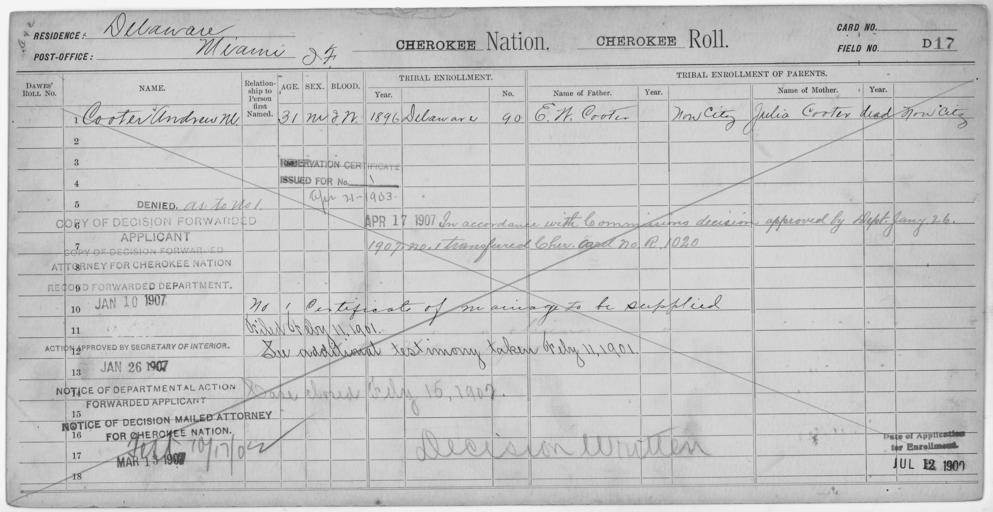 RESIDENCE: Delaware
POST-OFFICE: Miami I.T.
CHEROKEE Nation. CHEROKEE Roll.
CARD NO.
FIELD NO. D17
DAWES' ROLL NO. NAME. Relationship to Person first Named. AGE. SEX. BLOOD. TRIBAL ENROLLMENT. Year. No. TRIBAL ENROLLMENT OF PARENTS. Name of Father. Year. Name of Mother. Year.
1 Cooter Andrew M. 31 M I.W. 1896 Delaware 90 E. W. Cooter Non City Julia Cooter dead Non City
2
3 RESERVATION CERTIFICATE
4 ISSUED FOR No. 1
Apr 21-1903
5 DENIED. as to No 1.
6 COPY OF DECISION FORWARDED APR 17 1907 In accordance with Commissions decision approved by Dept. Jany 26.
7 APPLICANT 1907 no. 1 transferred Cher. card no. R. 1020
COPY OF DECISION FORWARDED
8 ATTORNEY FOR CHEROKEE NATION
9 RECORD FORWARDED DEPARTMENT.
10 JAN 10 1907 No 1 Certificate of marriage to be supplied
11 Filed Feby 11, 1901.
12 ACTION APPROVED BY SECRETARY OF INTERIOR. See additional testimony taken Feby 11, 1901.
13 JAN 26 1907
14 NOTICE OF DEPARTMENTAL ACTION Case closed Feby 15, 1902.
FORWARDED APPLICANT
15
NOTICE OF DECISION MAILED ATTORNEY
16 FOR CHEROKEE NATION.
17 10/17/02 Decision Written
MAR 1 1907
18
Date of Application for Enrollment.
JUL 12 1900